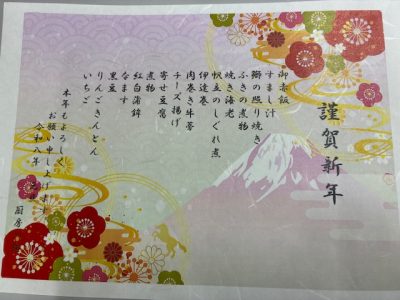 謹賀新年
御赤飯
すまし汁
鰤の照り焼き
ふきの煮物
焼き海老
帆立のしぐれ煮
伊達巻
肉巻き牛蒡
チーズ揚げ
寄せ豆腐
煮物
紅白蒲鉾
なます
黒豆
りんごきんとん
いちご
本年もよろしく
お願い申し上げます
令和八年
厨房